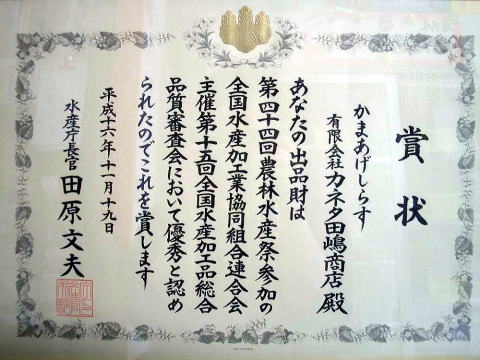 賞状
かまあげしらす
有限会社カネタ田嶋商店殿
あなたの出品財は
第四十四回農林水産祭参加の
全国水産加工業協同組合連合会
主催第十五回全国水産加工品総合
品質審査会において優秀と認め
られたのでこれを賞します
平成十六年十一月十九日
水産庁長官 田原文夫